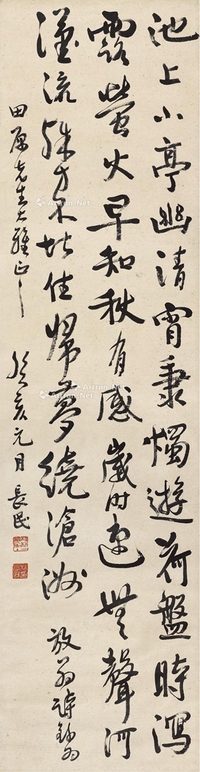 池上小亭幽清宵秉燭遊荷盤時瀉
露螢火早知秋有感歲時速無聲河
漢流殊方未堪住歸夢繞滄洲 放翁詩錄為
田原先生大雅正之 癸亥元月長民